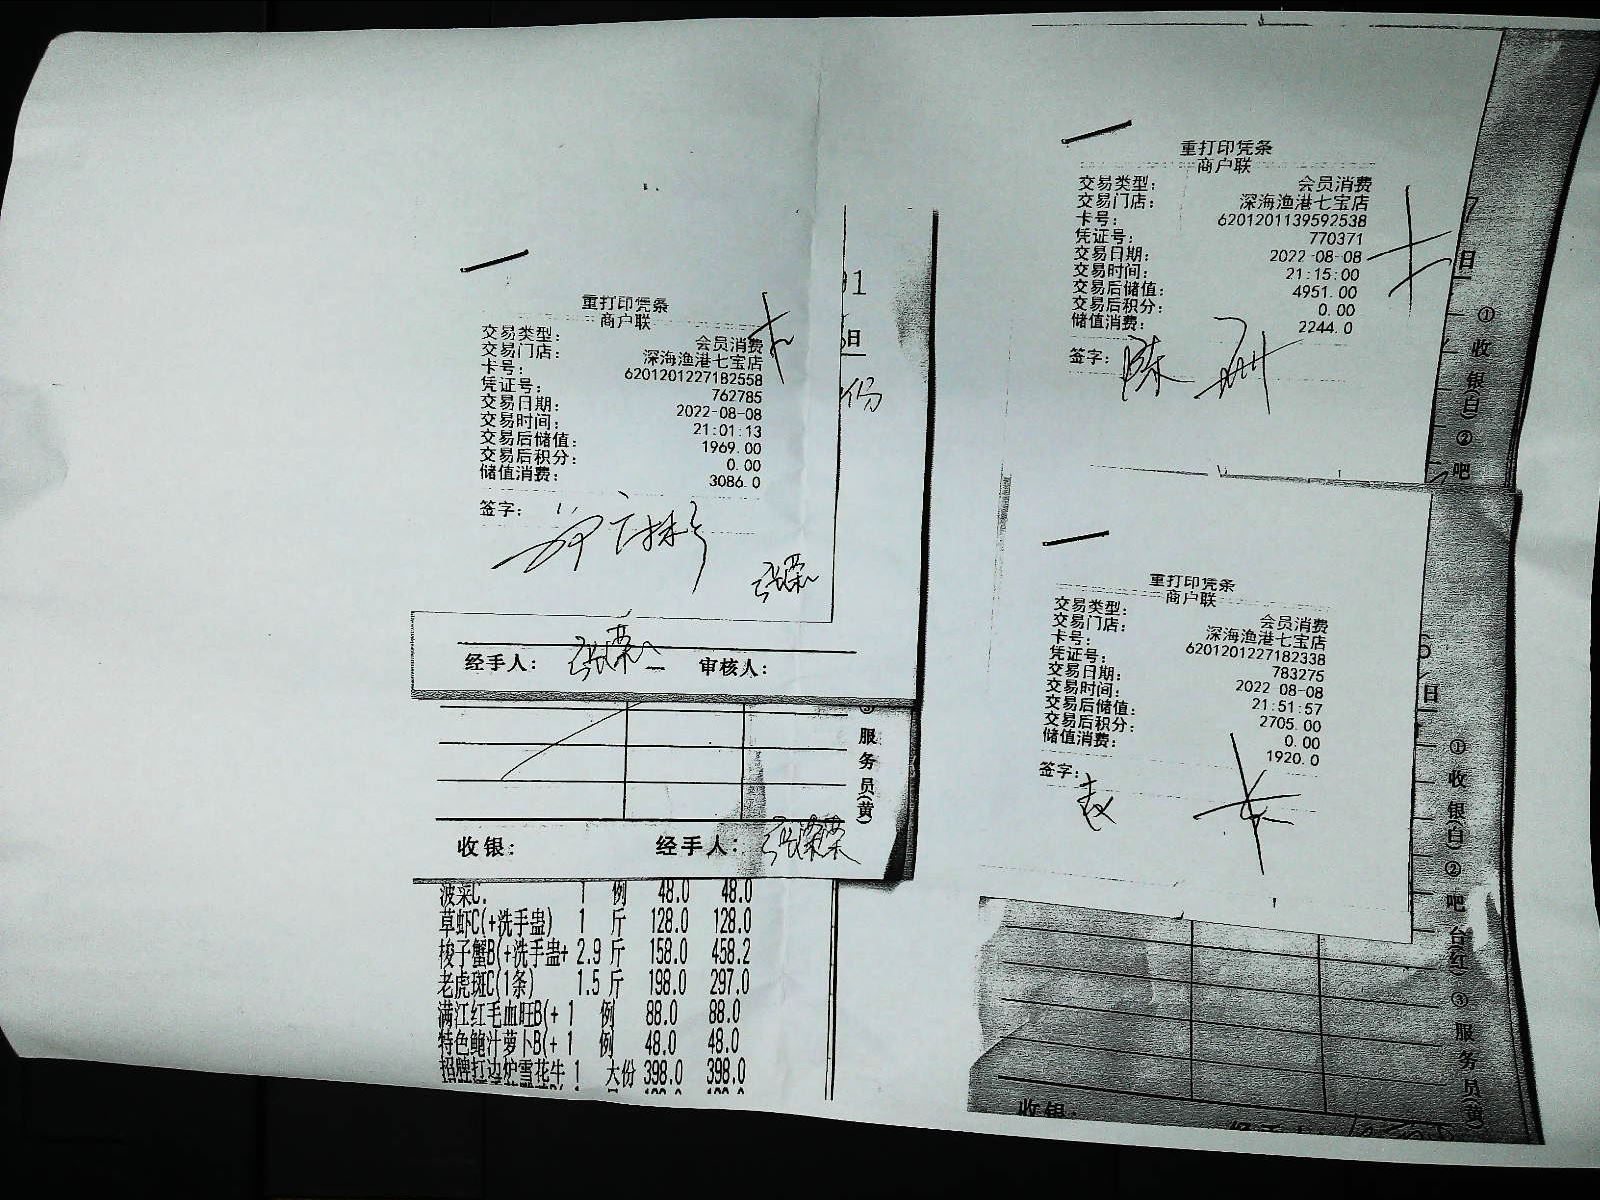 重打印凭条
商户联
交易类型： 会员消费
交易门店： 深海渔港七宝店
卡号： 6201201227182558
凭证号： 762785
交易日期： 2022-08-08
交易时间： 21:01:13
交易后储值： 1969.00
交易后积分： 0.00
储值消费： 3086.0
签字：
张荣
01
日
份
经手人： 张荣 审核人：
③服务员(黄)
收银： 经手人：
菠菜C. 1 例 48.0 48.0
草虾C(+洗手盅) 1 斤 128.0 128.0
梭子蟹B(+洗手盅+ 2.9 斤 158.0 458.2
老虎斑C(1条) 1.5 斤 198.0 297.0
满江红毛血旺B(+ 1 例 88.0 88.0
特色鲍汁萝卜B(+ 1 例 48.0 48.0
招牌打边炉雪花牛 1 大份 398.0 398.0
重打印凭条
商户联
交易类型： 会员消费
交易门店： 深海渔港七宝店
卡号： 6201201139592538
凭证号： 770371
交易日期： 2022-08-08
交易时间： 21:15:00
交易后储值： 4951.00
交易后积分： 0.00
储值消费： 2244.0
签字： 陈
7
日
①收银(白)②吧
重打印凭条
商户联
交易类型： 会员消费
交易门店： 深海渔港七宝店
卡号： 6201201227182338
凭证号： 783275
交易日期： 2022-08-08
交易时间： 21:51:57
交易后储值： 2705.00
交易后积分： 0.00
储值消费： 1920.0
签字： 赵
日
①收银(白)②吧台(红)③服务员(黄)
收银：